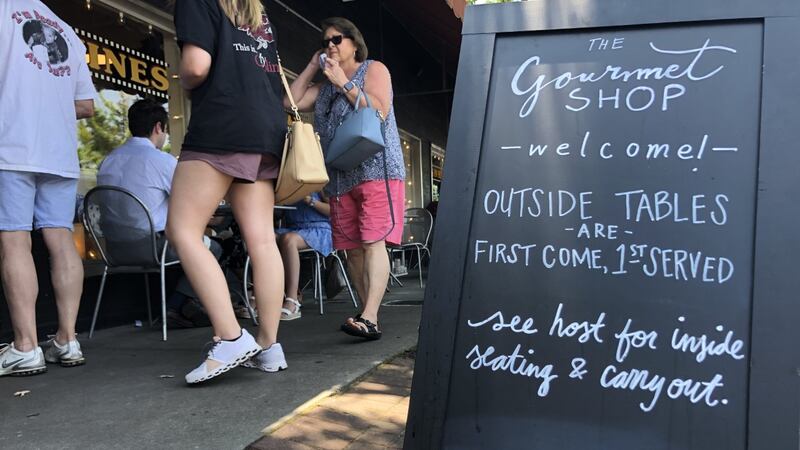 I'm Ready
INES
This is
THE
Gourmet
SHOP
- welcome! -
OUTSIDE TABLES
- ARE -
FIRST COME, 1ST SERVED
see host for inside
seating & carry out.